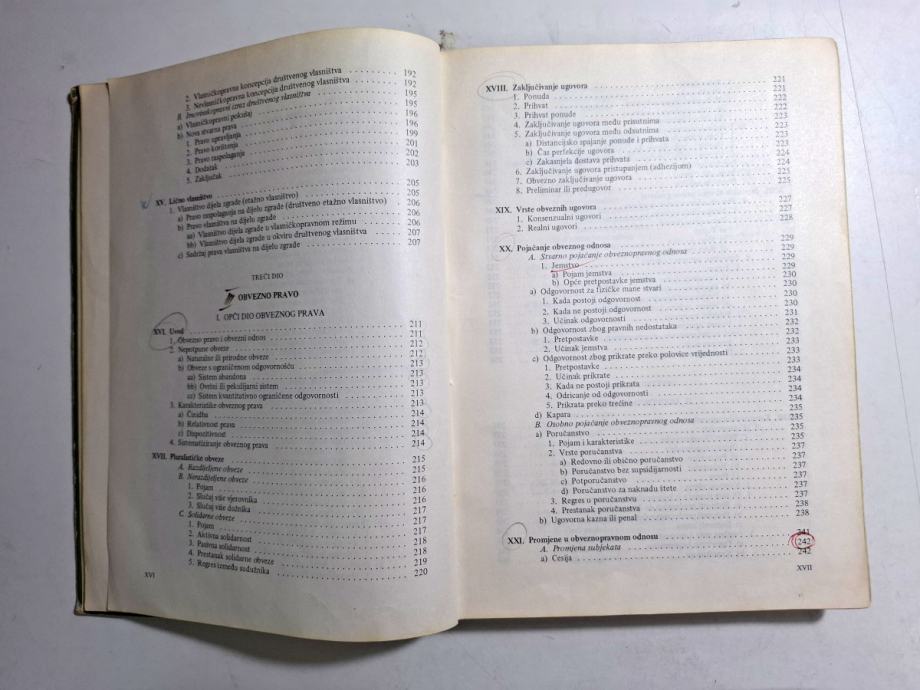 2. Vlasničkopravna koncepcija društvenog vlasništva 192
3. Nevlasničkopravna koncepcija društvenog vlasništva 192
B. Imovinskopravni izraz društvenog vlasništva 195
a) Vlasničkopravni pokušaj 195
b) Nova stvarna prava 196
1. Pravo upravljanja 196
2. Pravo korištenja 199
3. Pravo raspolaganja 201
4. Dodatak 202
5. Zaključak 203
XV. Lično vlasništvo 205
1. Vlasništvo dijela zgrade (etažno vlasništvo) 205
a) Pravo raspolaganja na dijelu zgrade (društveno etažno vlasništvo) 206
b) Pravo vlasništva na dijelu zgrade 206
aa) Vlasništvo dijela zgrade u vlasničkopravnom režimu 206
bb) Vlasništvo dijela zgrade u okviru društvenog vlasništva 207
c) Sadržaj prava vlasništva na dijelu zgrade 207
TREĆI DIO
OBVEZNO PRAVO
I. OPĆI DIO OBVEZNOG PRAVA
XVI. Uvod 211
1. Obvezno pravo i obvezni odnos 211
2. Nepotpune obveze 212
a) Naturalne ili prirodne obveze 212
b) Obveze s ograničenom odgovornošću 213
aa) Sistem abandona 213
bb) Ovršni ili pekulijarni sistem 213
cc) Sistem kvantitativno ograničene odgovornosti 213
3. Karakteristike obveznog prava 213
a) Činidba 214
b) Relativnost prava 214
c) Dispozitivnost 214
4. Sistematiziranje obveznog prava 214
XVII. Pluralističke obveze 215
A. Razdijeljene obveze 215
B. Nerazdijeljene obveze 216
1. Pojam 216
2. Slučaj više vjerovnika 216
3. Slučaj više dužnika 217
C. Solidarne obveze 217
1. Pojam 217
2. Aktivna solidarnost 218
3. Pasivna solidarnost 218
4. Prestanak solidarne obveze 219
5. Regres između sudužnika 220
XVI
XVIII. Zaključivanje ugovora 221
1. Ponuda 221
2. Prihvat 222
3. Prihvat ponude 222
4. Zaključivanje ugovora među prisutnima 223
5. Zaključivanje ugovora među odsutnima 223
a) Distancijsko spajanje ponude i prihvata 223
b) Čas perfekcije ugovora 224
c) Zakasnjela dostava prihvata 224
6. Zaključivanje ugovora pristupanjem (adhezijom) 224
7. Obvezno zaključivanje ugovora 225
8. Preliminar ili predugovor 225
XIX. Vrste obveznih ugovora 227
1. Konsenzualni ugovori 227
2. Realni ugovori 228
XX. Pojačanje obveznog odnosa 229
A. Stvarno pojačanje obveznopravnog odnosa 229
1. Jemstvo 229
a) Pojam jemstva 229
b) Opće pretpostavke jemstva 230
a) Odgovornost za fizičke mane stvari 230
1. Kada postoji odgovornost 230
2. Kada ne postoji odgovornost 230
3. Učinak odgovornosti 231
b) Odgovornost zbog pravnih nedostataka 232
1. Pretpostavke 232
2. Učinak jemstva 233
c) Odgovornost zbog prikrate preko polovice vrijednosti 233
1. Pretpostavke 233
2. Učinak prikrate 234
3. Kada ne postoji prikrata 234
4. Odricanje od odgovornosti 234
5. Prikrata preko trećine 234
d) Kapara 235
B. Osobno pojačanje obveznopravnog odnosa 235
a) Poručanstvo 235
1. Pojam i karakteristike 235
2. Vrste poručanstva 237
a) Redovno ili obično poručanstvo 237
b) Poručanstvo bez supsidijarnosti 237
c) Potporučanstvo 237
d) Poručanstvo za naknadu štete 237
3. Regres u poručanstvu 237
4. Prestanak poručanstva 238
b) Ugovorna kazna ili penal 238
XXI. Promjene u obveznopravnom odnosu 241
A. Promjena subjekata 242
a) Cesija 242
XVII